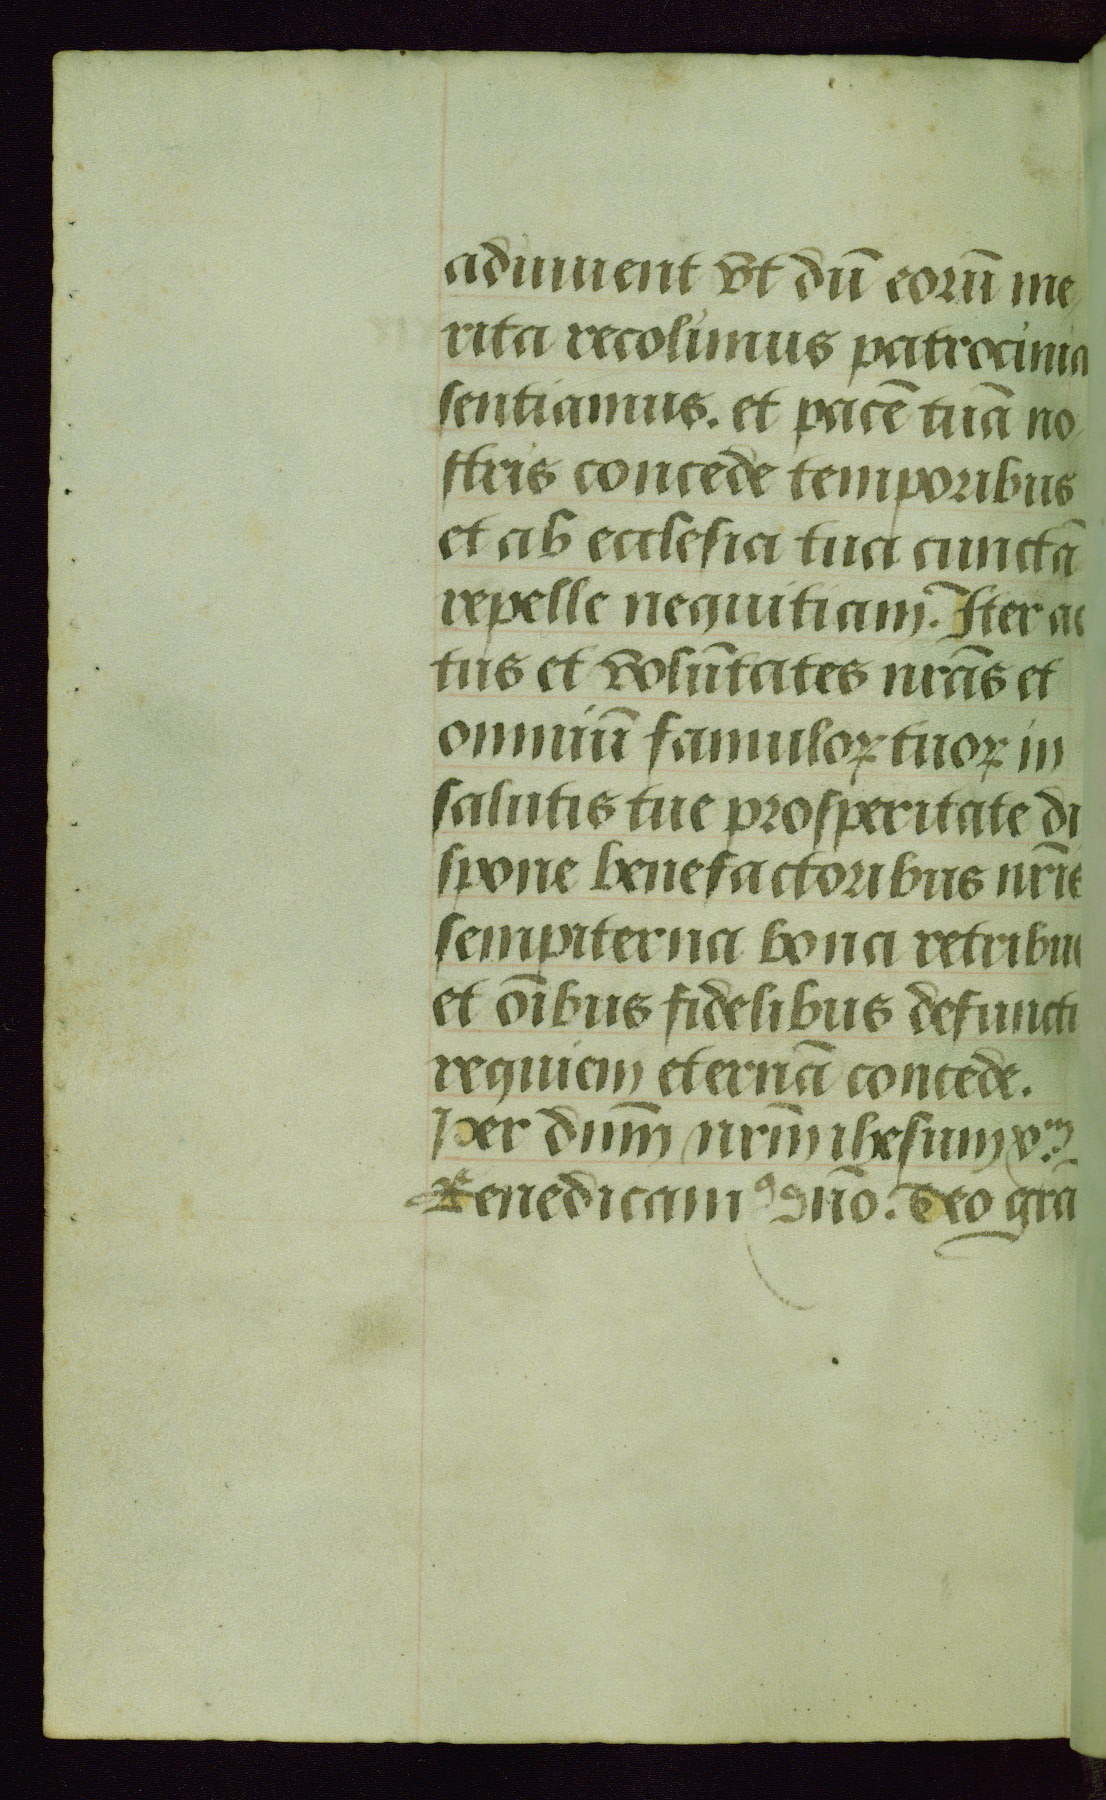 adiuuent vt dū eorū me
rita recolimus patrocinia
sentiamus. et pacē tuā no
stris concede temporibus
et ab ecclesia tua cunctā
repelle nequitiam. Iter ac
tus et volūtates nrās et
omniū famuloꝝ tuoꝝ in
salutis tue prosperitate di
spone benefactoribus nrīs
sempiterna bona retribue
et oībus fidelibus defuncti
requiem eternā concede.
Per dnm̄ nrm̄ ihesum
Benedicam⁹ dnō. Deo grā